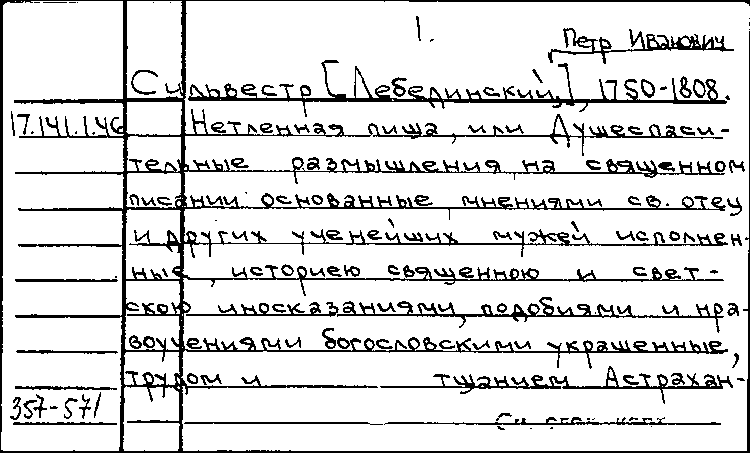 1.
Петр Иванович
Сильвестр [Лебединский,], 1750-1808.
17.141.1.46 Нетленная пища, или Душеспаси-
тельные размышления на священном
писании основанные мнениями св. отец
и других ученейших мужей исполнен-
ные, историею священною и свет-
скою иносказаниями, подобиями и нра-
воучениями богословскими украшенные,
трудом и тщанием Астрахан-
357-571
См. след. карт.